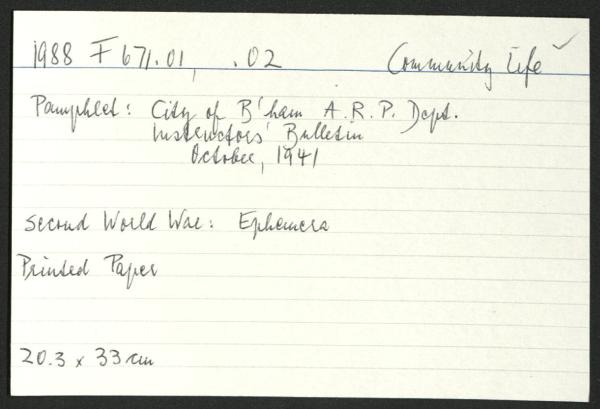 1988 F 671.01, .02 Community Life ✓
Pamphlet: City of B'ham A.R.P. Dept.
Instructors' Bulletin
October, 1941
Second World War: Ephemera
Printed Paper
20.3 x 33 cm